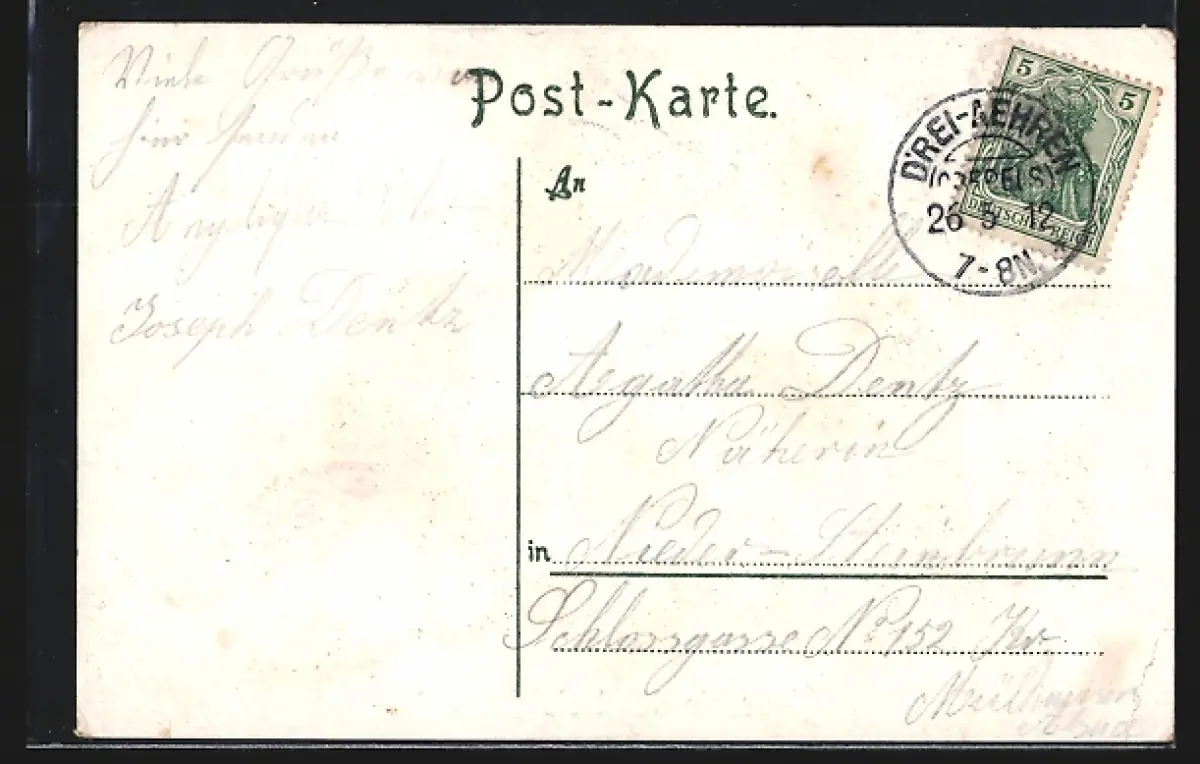 Viele Grüße
Joseph Dentz
Post-Karte.
5 5
DREI-AEHREN
26 5 12
7-8N.
DEUTSCHES REICH
An
Mademoiselle
Agatha Dentz
Näherin
in Nieder-Steinbrunn
Schlossgasse No 152 Kr.
Mülhausen
Elsaß